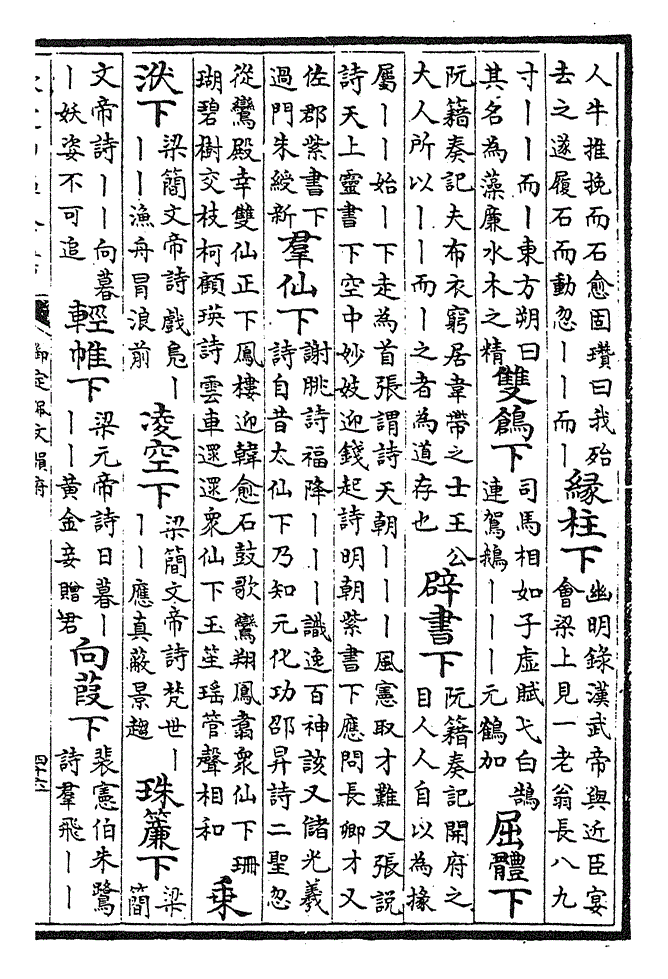 人牛推挽而石愈固瓚曰我殆
去之遂履石而動忽｜｜而｜
緣柱下
幽明錄漢武帝與近臣宴
會梁上見一老翁長八九
寸｜｜而｜東方朔曰
其名為藻廉水木之精
雙鶬下
司馬相如子虛賦弋白鵠
連駕鵝｜｜｜元鶴加
屈體下
阮籍奏記夫布衣窮居韋帶之士王公
大人所以｜｜而｜之者為道存也
辟書下
阮籍奏記開府之
目人人自以為掾
屬｜｜始｜下走為首張謂詩天朝｜｜｜風憲取才難又張說
詩天上靈書下空中妙妓迎錢起詩明朝紫書下應問長卿才又
佐郡紫書下
過門朱綬新
羣仙下
謝朓詩福降｜｜｜識逸百神該又儲光羲
詩自昔太仙下乃知元化功邵昇詩二聖忽
從鸞殿幸雙仙正下鳳樓迎韓愈石鼓歌鸞翔鳳翥衆仙下珊
瑚碧樹交枝柯顧瑛詩雲車還還衆仙下玉笙瑤管聲相和
乘
洑下
梁簡文帝詩戲鳧｜
｜｜漁舟冒浪前
凌空下
梁簡文帝詩梵世｜
｜｜應真蔽景趨
珠簾下
梁
簡
文帝詩｜｜向暮
｜妖姿不可追
輕帷下
梁元帝詩日暮｜
｜｜黃金妾贈君
向葭下
裴憲伯朱鷺
詩羣飛｜｜
御定佩文韻府
四十六